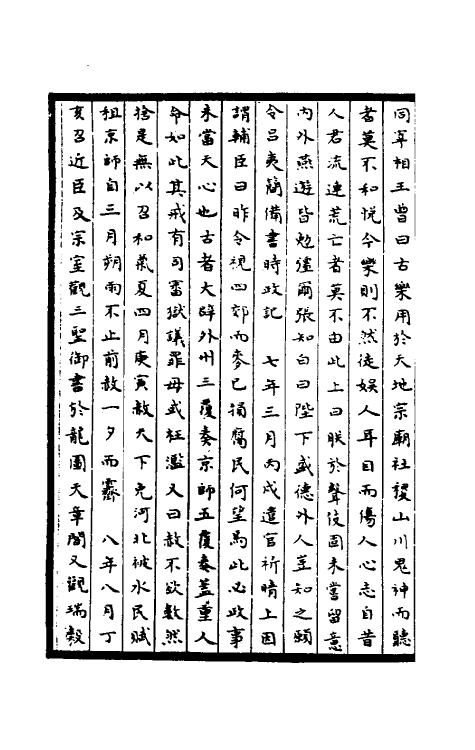 同宰相王曾曰古樂用於天地宗廟社稷山川鬼神而聽
者莫不和悅今樂則不然徒娛人耳目而傷人心志自昔
人君流連荒亡者莫不由此上曰朕於聲伎固未嘗留意
內外燕遊皆勉彊爾張知白曰陛下盛德外人豈知之願
令呂夷簡備書時政記　七年三月丙戌遣官祈晴上因
謂輔臣曰昨令視四郊而麥已損腐民何望焉此必政事
未當天心也古者大辟外州三覆奏京師五覆奏蓋重人
命如此其戒有司審獄議罪毋或枉濫又曰赦不欲數然
捨是無以召和氣夏四月庚寅赦天下免河北被水民賦
租京師自三月朔雨不止前赦一夕而霽　八年八月丁
亥召近臣及宗室觀三聖御書於龍圖天章閣又觀瑞穀